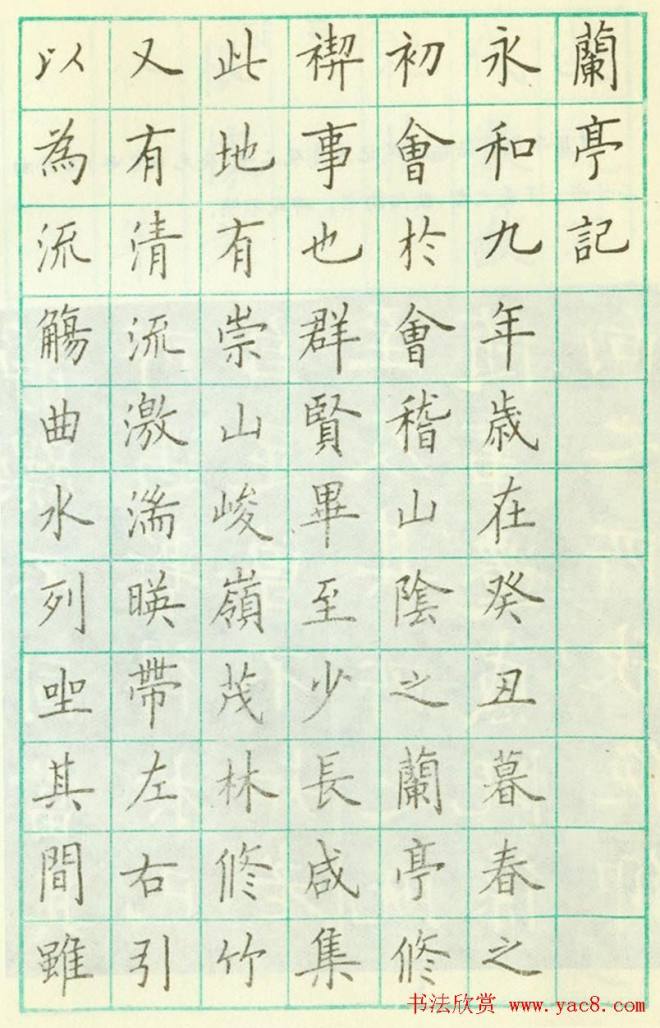 蘭亭記
永和九年歲在癸丑暮春之
初會於會稽山陰之蘭亭修
禊事也群賢畢至少長咸集
此地有崇山峻嶺茂林修竹
又有清流激湍暎帶左右引
以為流觴曲水列坐其間雖
书法欣赏 www.yac8.com